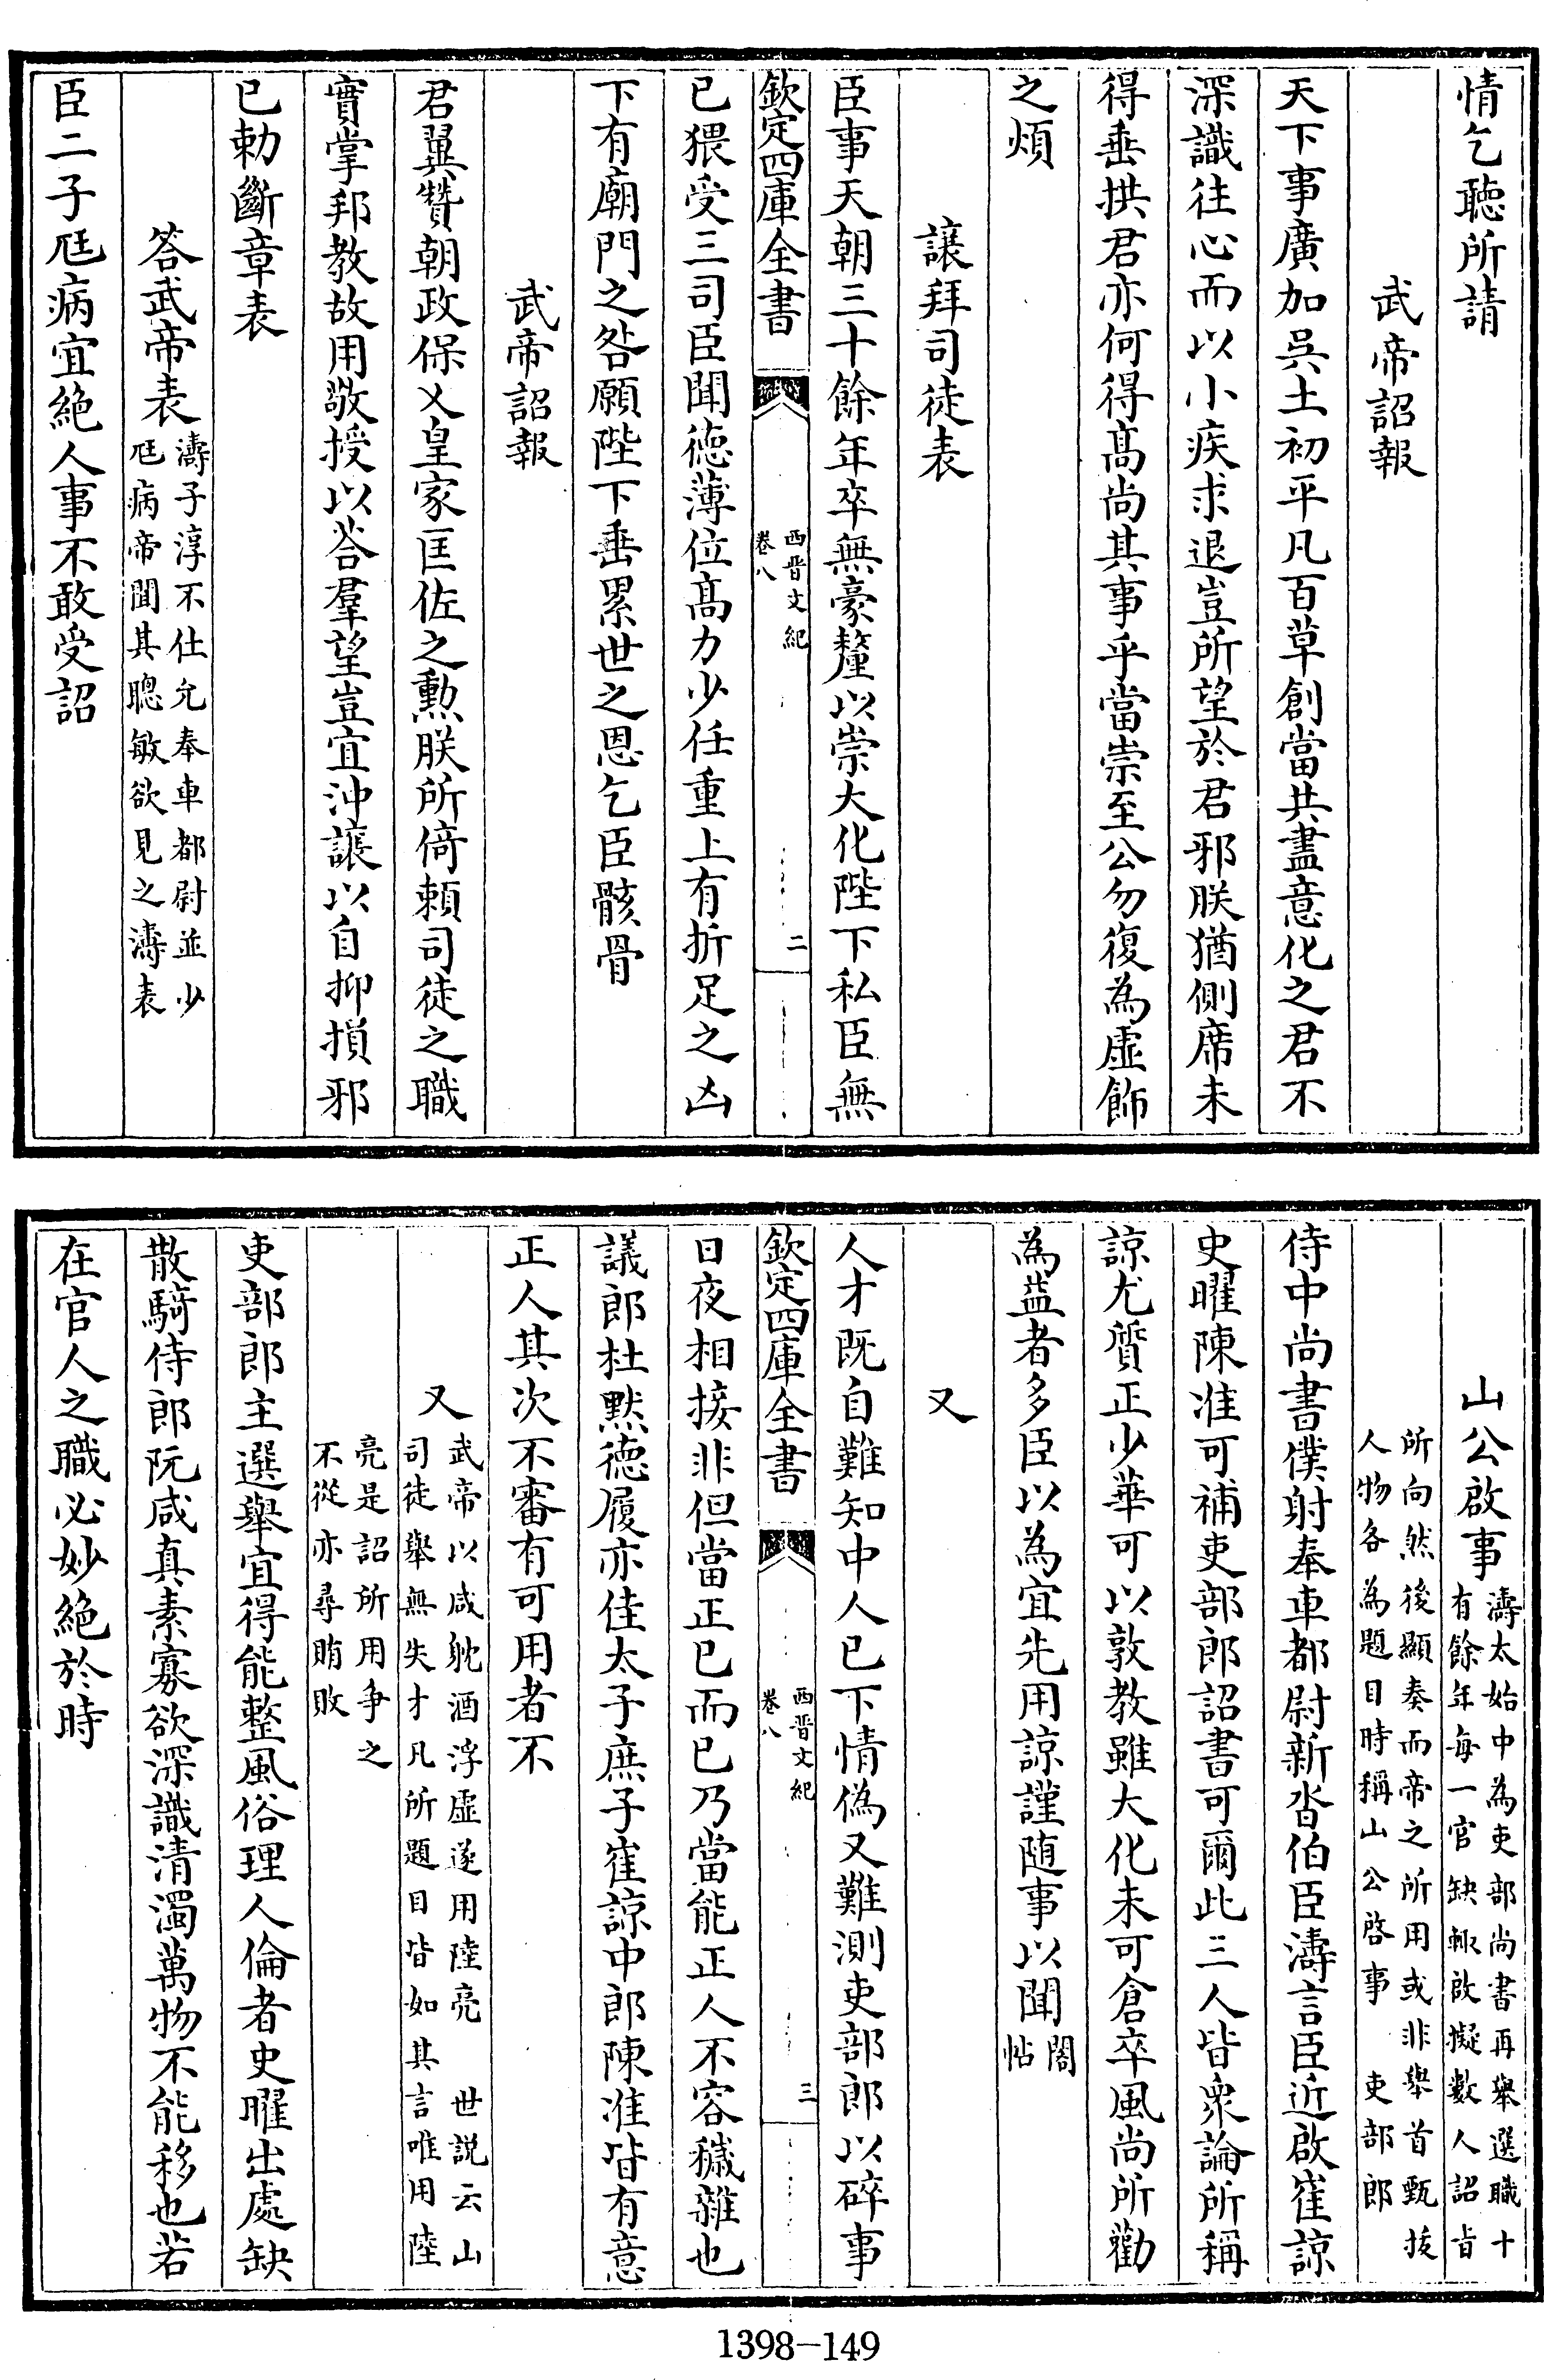 情乞聽所請
武帝詔報
天下事廣加吳土初平凡百草創當共盡意化之君不
深識往心而以小疾求退豈所望於君邪朕猶側席未
得垂拱君亦何得髙尚其事乎當崇至公勿復為虛飾
之煩
讓拜司徒表
臣事天朝三十餘年卒無豪釐以崇大化陛下私臣無
欽定四庫全書
西晋文紀
卷八
二
已猥受三司臣聞徳薄位髙力少任重上有折足之凶
下有廟門之咎願陛下垂累世之恩乞臣骸骨
武帝詔報
君翼贊朝政保乂皇家匡佐之勲朕所倚頼司徒之職
實掌邦教故用敬授以荅羣望豈宜沖讓以自抑損邪
已勅斷章表
答武帝表
濤子淳不仕允奉車都尉並少
尫病帝聞其聰敏欲見之濤表
臣二子尫病宜絶人事不敢受詔
山公啟事
濤太始中為吏部尚書再舉選職十
有餘年每一官缺輙啟擬數人詔㫖
所向然後顯奏而帝之所用或非舉首甄拔
人物各為題目時稱山公啓事 吏部郎
侍中尚書僕射奉車都尉新沓伯臣濤言臣近啟崔諒
史曜陳准可補吏部郎詔書可爾此三人皆衆論所稱
諒尤質正少華可以敦教雖大化未可倉卒風尚所勸
為益者多臣以為宜先用諒謹随事以聞
閣
帖
又
人才既自難知中人已下情偽又難測吏部郎以碎事
欽定四庫全書
西晋文紀
卷八
三
日夜相接非但當正已而已乃當能正人不容穢雜也
議郎杜黙徳履亦佳太子庶子崔諒中郎陳准皆有意
正人其次不審有可用者不
又
武帝以咸躭酒浮虛遂用陸亮 世說云山
司徒舉無失才凡所題目皆如其言唯用陸
亮是詔所用争之
不從亦尋賄敗
吏部郎主選舉宜得能整風俗理人倫者史曜出處缺
散騎侍郎阮咸真素寡欲深識清濁萬物不能移也若
在官人之職必妙絶於時
1398-149